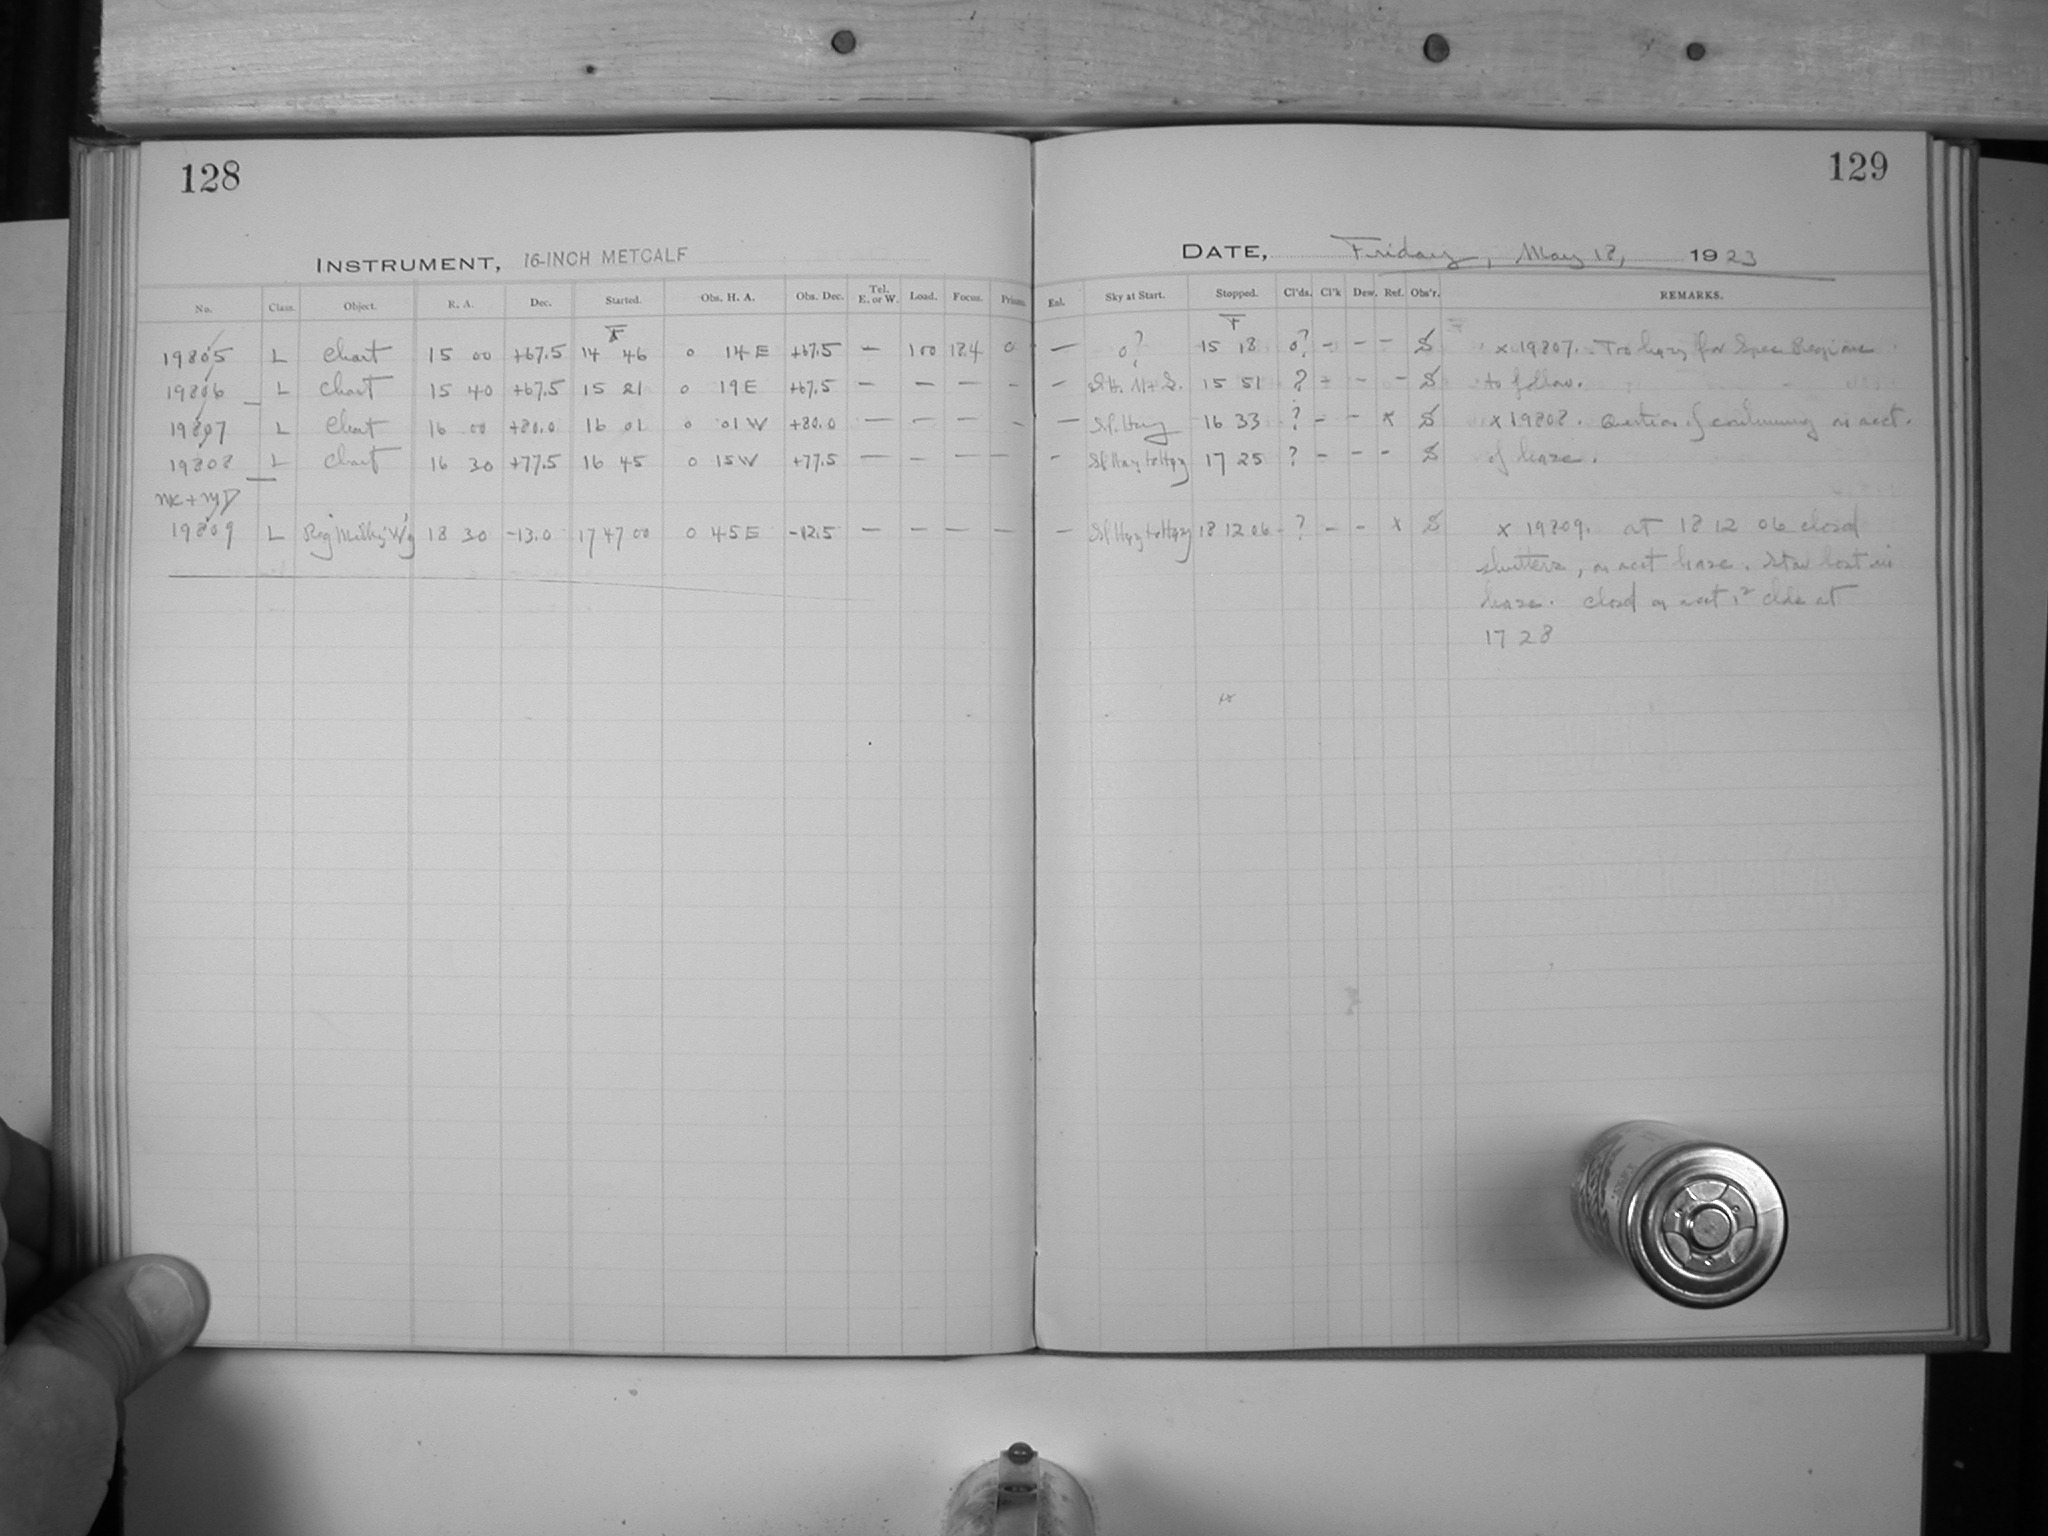 128
129
INSTRUMENT, 16-INCH METCALF
DATE, Friday, May 18, 1923
No. Class. Object. R. A. Dec. Started. Obs. H. A. Obs. Dec. Tel. E. or W. Load. Focus. Prism. Enl. Sky at Start. Stopped. Cl'ds. Cl'k Dew. Ref. Obs'r. REMARKS.
F F
19805 L Chart 15 00 +67.5 14 46 0 14 E +67.5 — 100 18.4 0 — 0? 15 18 0? - - - S x 19807. Too hazy for Spec Regions
19806 L Chart 15 40 +67.5 15 21 0 19 E +67.5 — — — - — 15 51 ? - - - S to follow.
19807 L Chart 16 00 +80.0 16 01 0 01 W +80.0 — — — - — Sl. Hazy 16 33 ? - - x S x 19808. Question of continuing on acct.
19808 L Chart 16 30 +77.5 16 45 0 15 W +77.5 — — — — - Sl Hazy to Hazy 17 25 ? - - - S of haze.
19809 L Reg Milky W'y 18 30 -13.0 17 47 00 0 45 E -12.5 — — — — — Sl Hazy to Hazy 18 12 06 ? - - x S x 19809. at 18 12 06 closed
shutters, on acct haze. Star lost in
haze. Closed on acct clds at
17 28